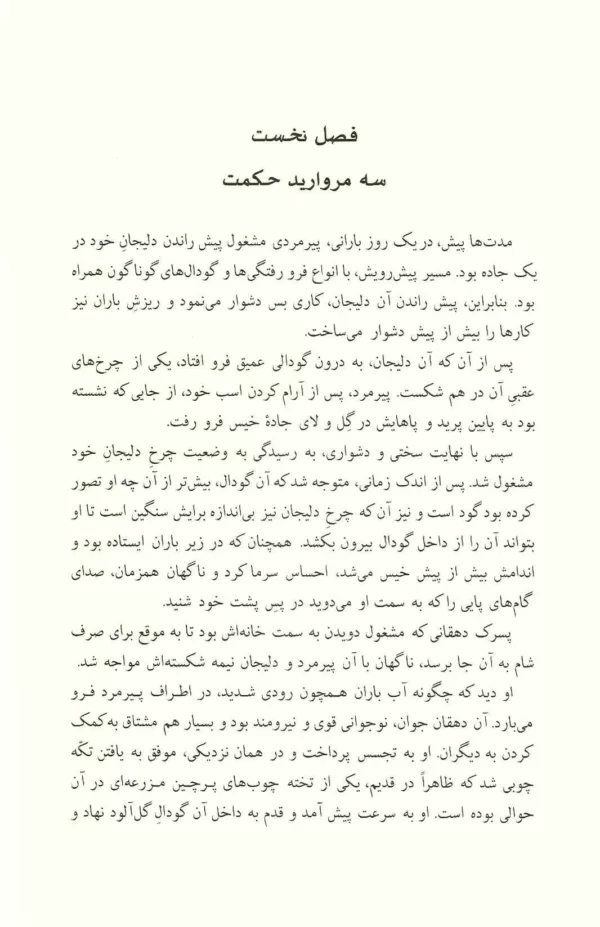 فصل نخست
سه مروارید حکمت
مدت‌ها پیش، در یک روز بارانی، پیرمردی مشغول پیش راندن دلیجانِ خود در
یک جاده بود. مسیر پیش‌رویش، با انواع فرو رفتگی‌ها و گودال‌های گوناگون همراه
بود. بنابراین، پیش راندن آن دلیجان، کاری بس دشوار می‌نمود و ریزشِ باران نیز
کارها را بیش از پیش دشوار می‌ساخت.
پس از آن که آن دلیجان، به درون گودالی عمیق فرو افتاد، یکی از چرخ‌های
عقبیِ آن در هم شکست. پیرمرد، پس از آرام کردن اسب خود، از جایی که نشسته
بود به پایین پرید و پاهایش در گِل و لای جادهٔ خیس فرو رفت.
سپس با نهایت سختی و دشواری، به رسیدگی به وضعیت چرخِ دلیجانِ خود
مشغول شد. پس از اندک زمانی، متوجه شد که آن گودال، بیش‌تر از آن چه او تصور
کرده بود گود است و نیز آن که چرخِ دلیجان نیز بی‌اندازه برایش سنگین است تا او
بتواند آن را از داخل گودال بیرون بکشد. همچنان که در زیر باران ایستاده بود و
اندامش بیش از پیش خیس می‌شد، احساس سرما کرد و ناگهان همزمان، صدای
گام‌های پایی را که به سمت او می‌دوید در پسِ پشت خود شنید.
پسرک دهقانی که مشغول دویدن به سمت خانه‌اش بود تا به موقع برای صرف
شام به آن جا برسد، ناگهان با آن پیرمرد و دلیجان نیمه شکسته‌اش مواجه شد.
او دید که چگونه آب باران همچون رودی شدید، در اطراف پیرمرد فرو
می‌بارد. آن دهقان جوان، نوجوانی قوی و نیرومند بود و بسیار هم مشتاق به‌کمک
کردن به دیگران. او به تجسس پرداخت و در همان نزدیکی، موفق به یافتن تکّه
چوبی شد که ظاهراً در قدیم، یکی از تخته چوب‌های پرچین مزرعه‌ای در آن
حوالی بوده است. او به سرعت پیش آمد و قدم به داخل آن گودالِ گل‌آلود نهاد و